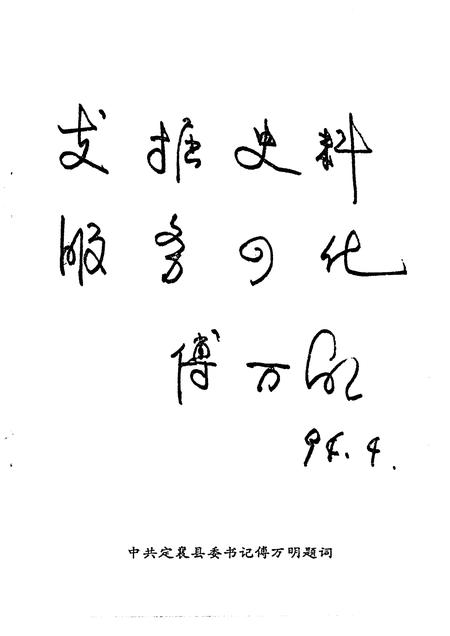 发掘史料
服务四化
傅万明
94.4.
中共定襄县委书记傅万明题词